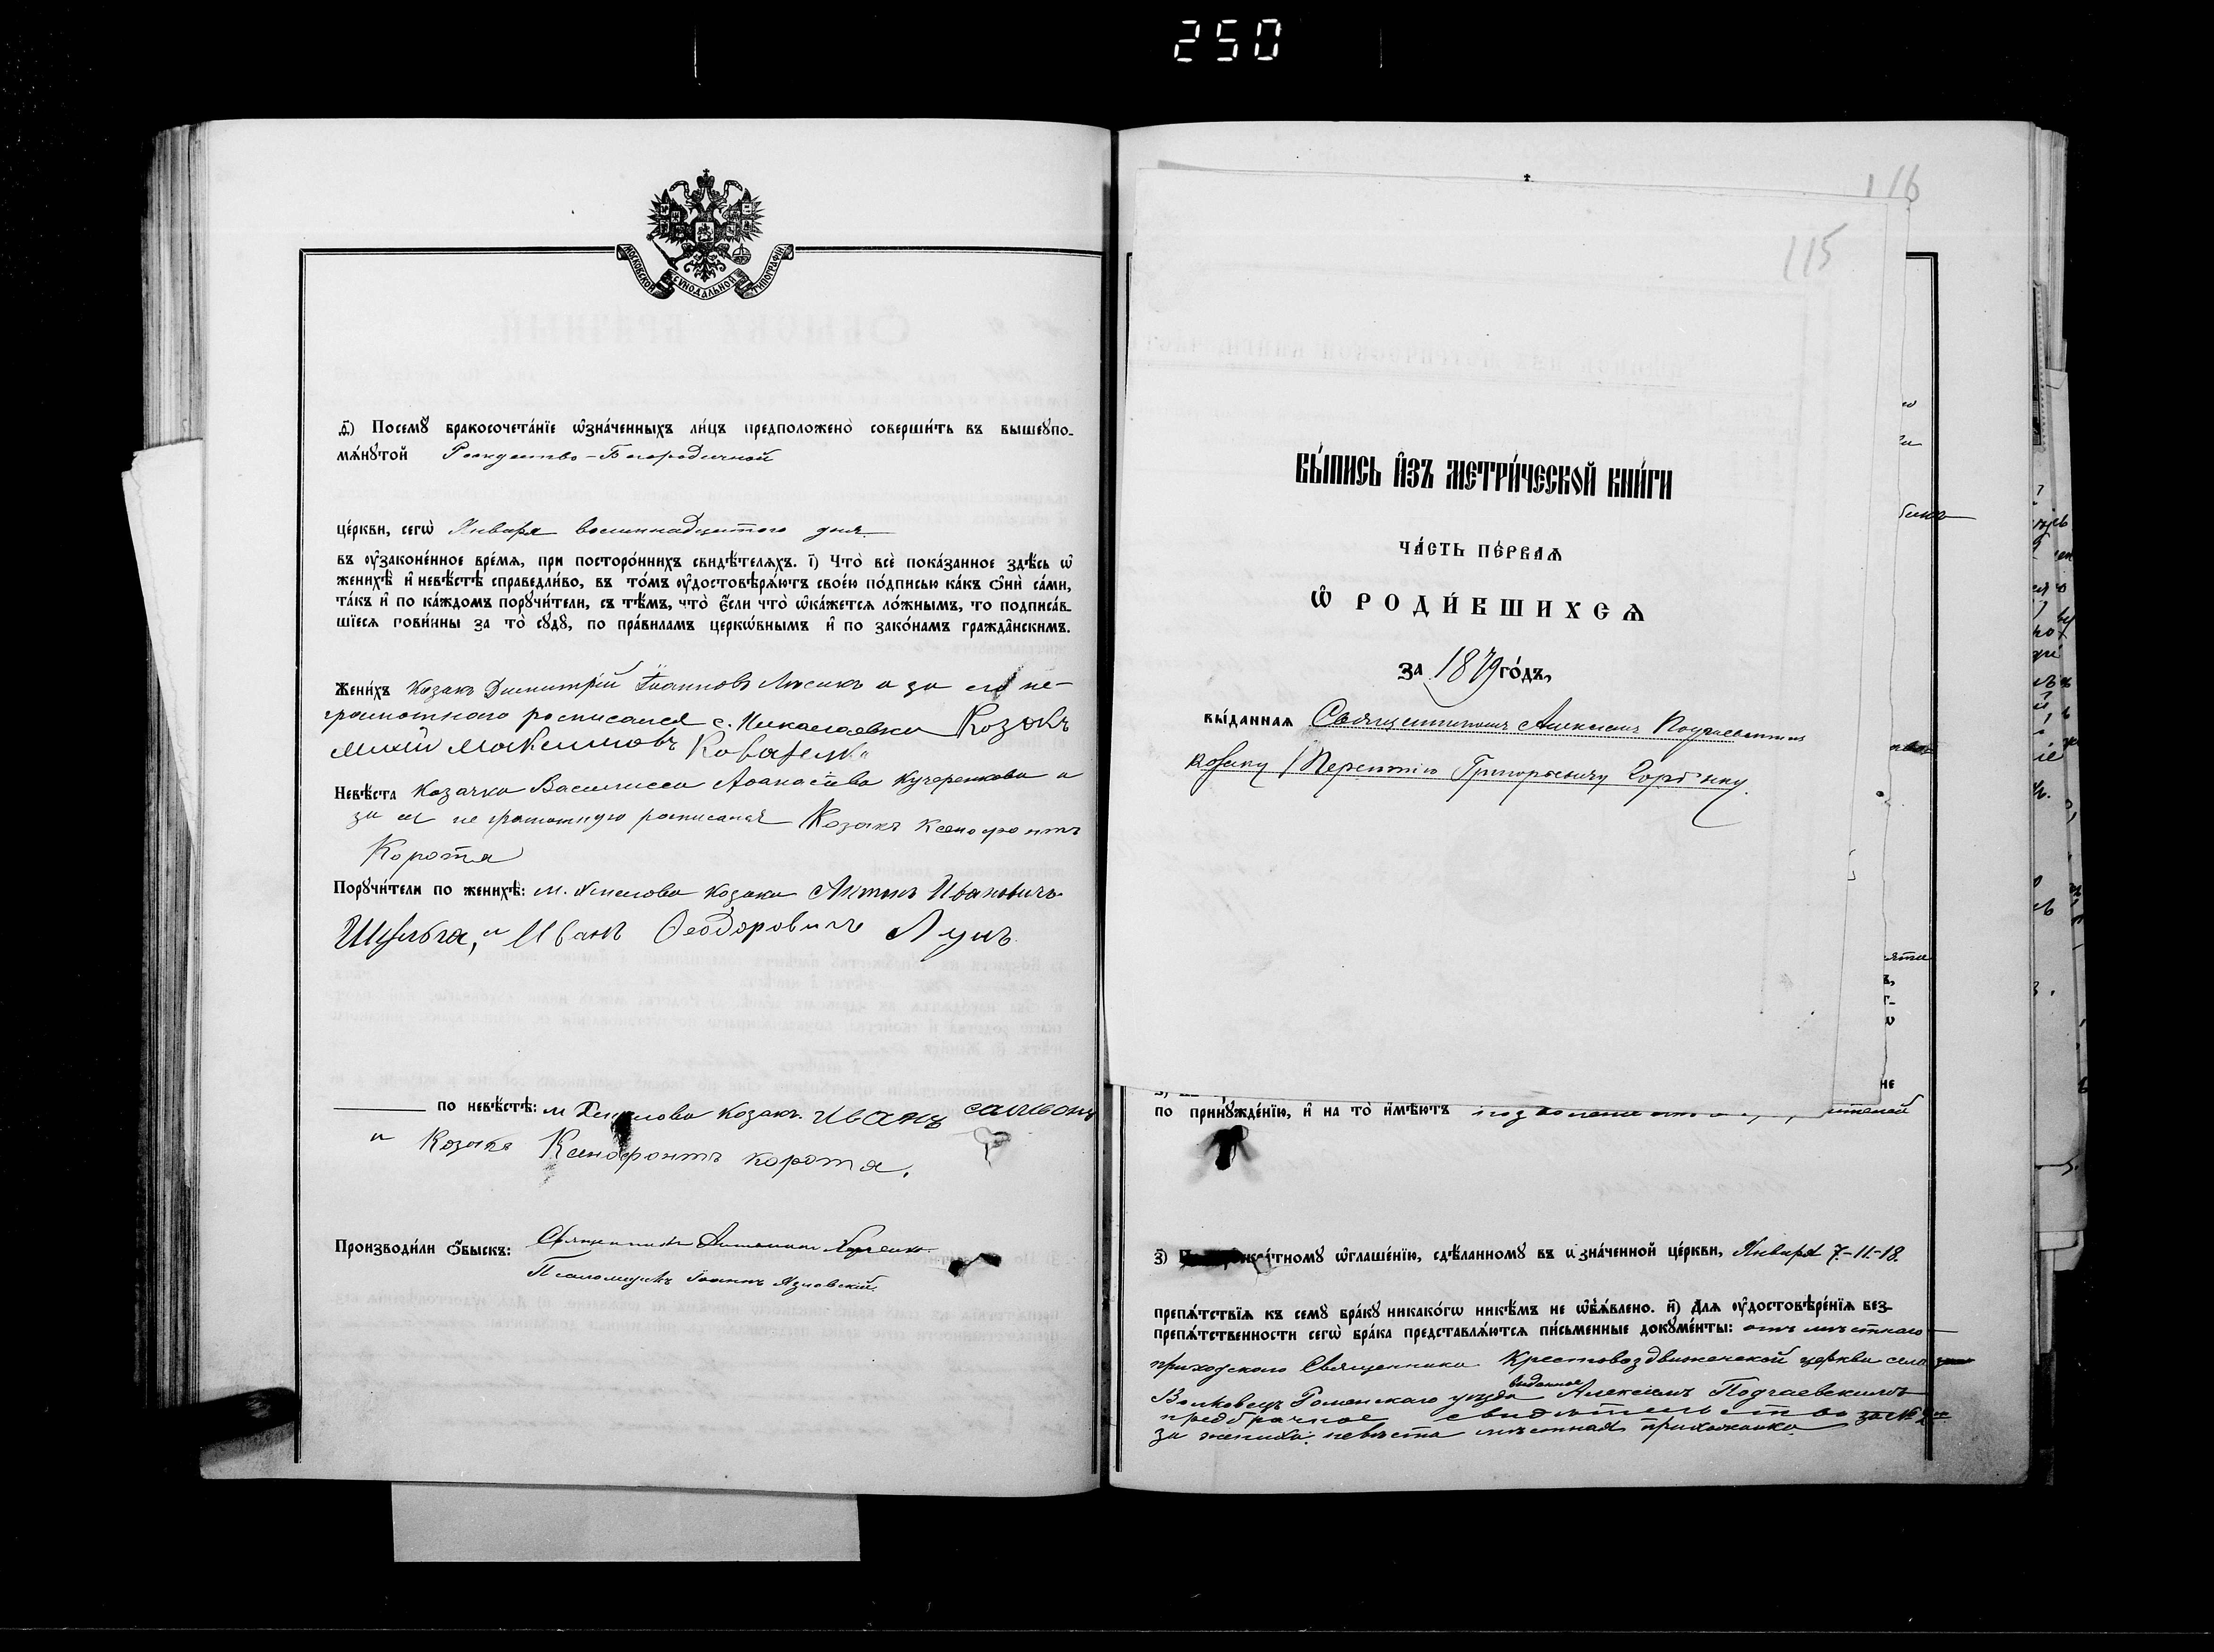 250
МОСКОВСКОЙ СѴНОДАЛЬНОЙ ТИПОГРАФІИ
д҃) Посемꙋ̀ бракосочета́нїе ѡ҆зна́ченныхъ ли́цъ предположено̀ соверши́ть въ вышеꙋпо-
мѧ́нꙋтой Рождество-Богородичной
це́ркви, сегѡ̀ Января восемнадцатого дня
въ ᲂу҆законе́нное вре́мѧ, при посторо́ннихъ свидѣ́телѧхъ. і҃) Что̀ всѐ пока́занное здѣ́сь ѡ҆
женихѣ̀ и҆ невѣ́стѣ справедли́во, въ то́мъ ᲂу҆достовѣрѧ́ютъ свое́ю по́дписью ка́къ ѻ҆нѝ са́ми,
та́къ и҆ по ка́ждомъ порꙋчи́тели, съ тѣ́мъ, что̀ є҆́сли что̀ ѡ҆ка́жетсѧ ло́жнымъ, то подписа́в-
шїесѧ пови́нны за то̀ сꙋдꙋ̀, по пра́виламъ церкѡ́внымъ и҆ по зако́намъ гражда̑нскимъ.
Жени́хъ Козакъ Димитрій Іоанновъ Лисикъ а за его не-
грамотнаго росписался с. Николаевки Козакъ
Михей Максимовъ
Невѣ́ста Козачка Василисса Аѳанасіева Кучеренкова а
за ея не грамотную росписался Козакъ Ксенофонтъ
Коротя
Порꙋчи́тели по женихѣ̀: м. Хмелова козаки Антонъ Ивановичъ
Шульга, и Иванъ Ѳеодоровичъ Лунъ
по невѣ́стѣ: м Хмелова Козакъ. Иванъ
и Козакъ Ксенофонтъ коротя.
Производи́ли ѻ҆́быскъ: Священникъ
Псаломщикъ Іоаннъ Язловскій.
116
115
ВЫ́ПИСЬ И҆ЗЪ МЕТРИ́ЧЕСКОЙ КНИ́ГИ
ЧА́СТЬ ПЕ́РВАѦ
Ѡ҆ РОДИ́ВШИХСѦ
за 1879 го́дъ,
вы́даннаѧ Священникомъ Алексіемъ Подчаевскимъ
козаку Терентію Григорьевичу
по принꙋжде́нїю, и҆ на то̀ и҆мѣ́ютъ
з҃) кра́тномꙋ ѡ҆глаше́нїю, сдѣ́ланномꙋ въ ѡ҆зна́ченной це́ркви, Января 7-11-18.
препѧ́тствїѧ къ семꙋ̀ бра́кꙋ никако́гѡ никѣ́мъ не ѡ҆б̾ѧ́влено. и҃) Длѧ ᲂу҆достовѣре́нїѧ без-
препѧ́тственности сегѡ̀ бра́ка представлѧ́ютсѧ пи́сьменные докꙋме́нты: отъ мѣстнаго
приходскаго Священника Крестовоздвиженской церкви села
Волковецъ Роменскаго уѣзда выданное Алексіемъ Подчаевскимъ
предбрачное свидѣтельство за №
за жениха, невѣста мѣстная прихожанка